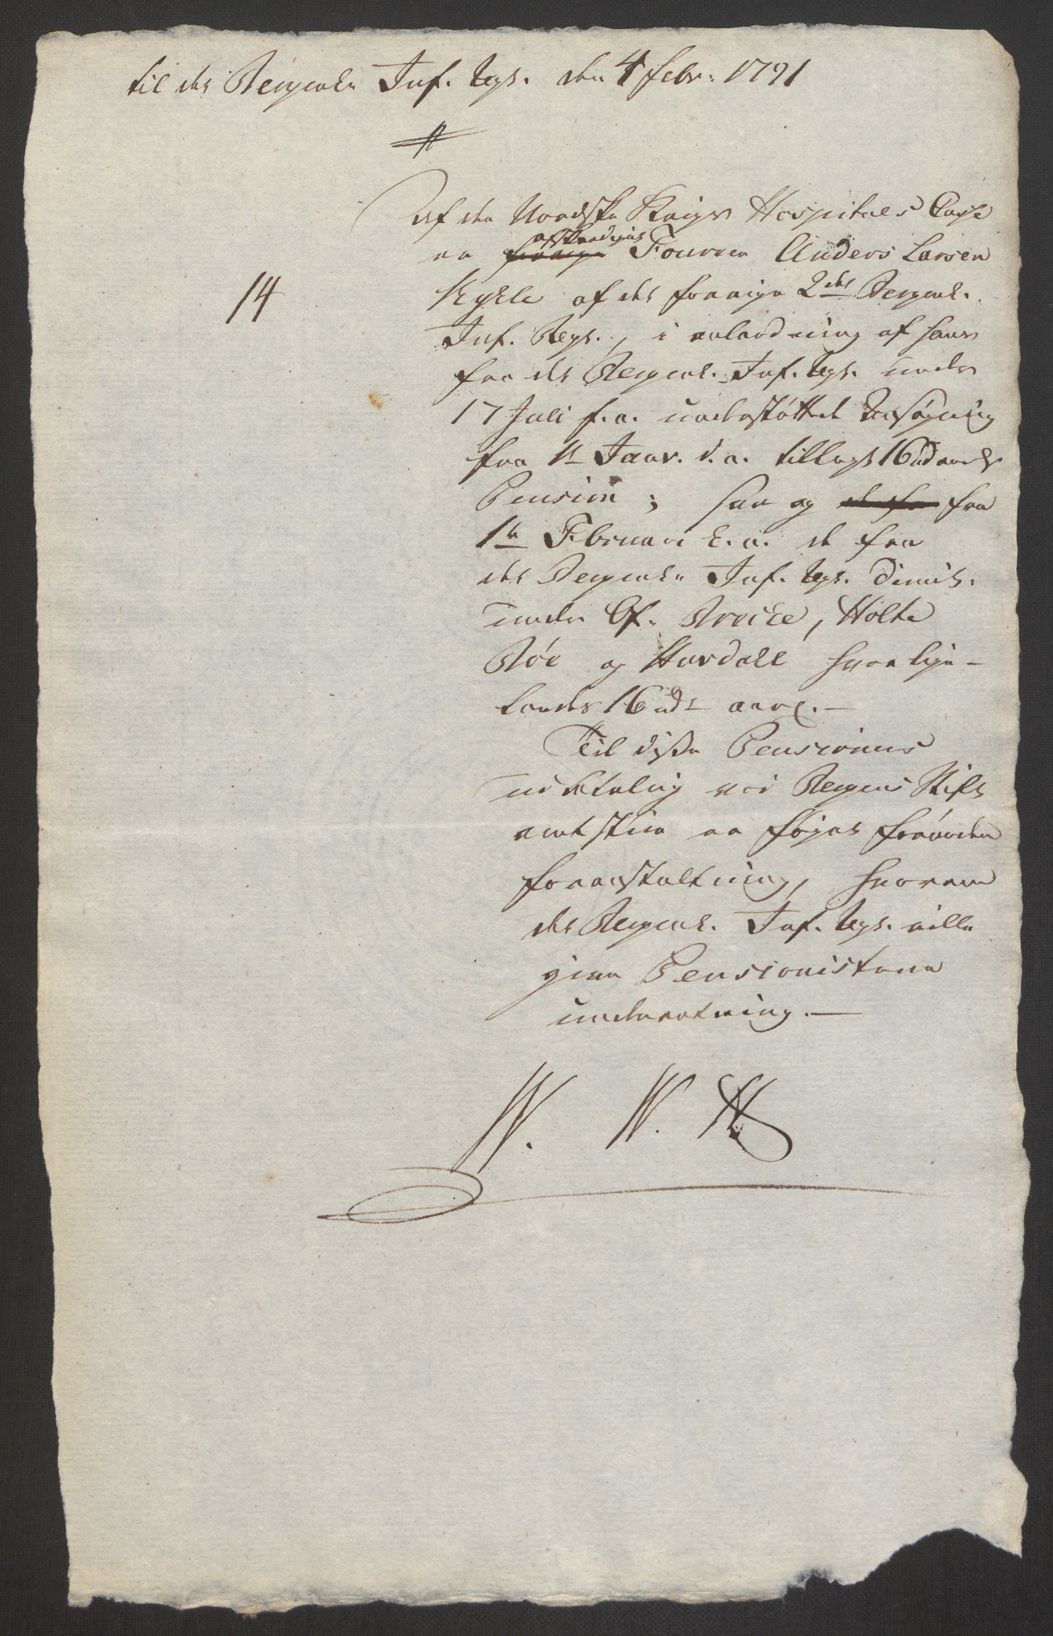 til det Bergenske Inf. Regt. den 4 Febr: 1791
Af den Nordske Krigs Hospitals Casse
er afskeedigede Fourer Anders Larsen
14
Kykle af det forrige 2det Bergens.
Inf. Regt., i anledning af hans
fra det Bergens. Inf. Regt. under
17 Juli f.a. understøttede Ansøgning
fra 1te Janv. d.a. tillagt 16 rd aarlig
Pension; saa og fra
1te Februari d.a. de fra
det Bergenske Inf. Regt. dimit.
under Of. Broche, Holte
Röe og Hardall hver lige-
ledes 16 rd aarl.
Til disse Pensioners
udbetaling ved Bergens Stifts
amtstue er føjet fornøden
foranstaltning, hvorom
det Bergens. Inf. Regt. ville
give Pensionisterne
underretning.